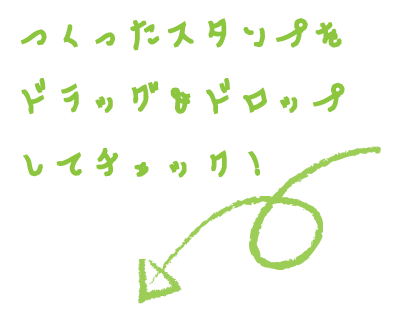 つくったスタンプを
ドラッグ&ドロップ
してチェック!